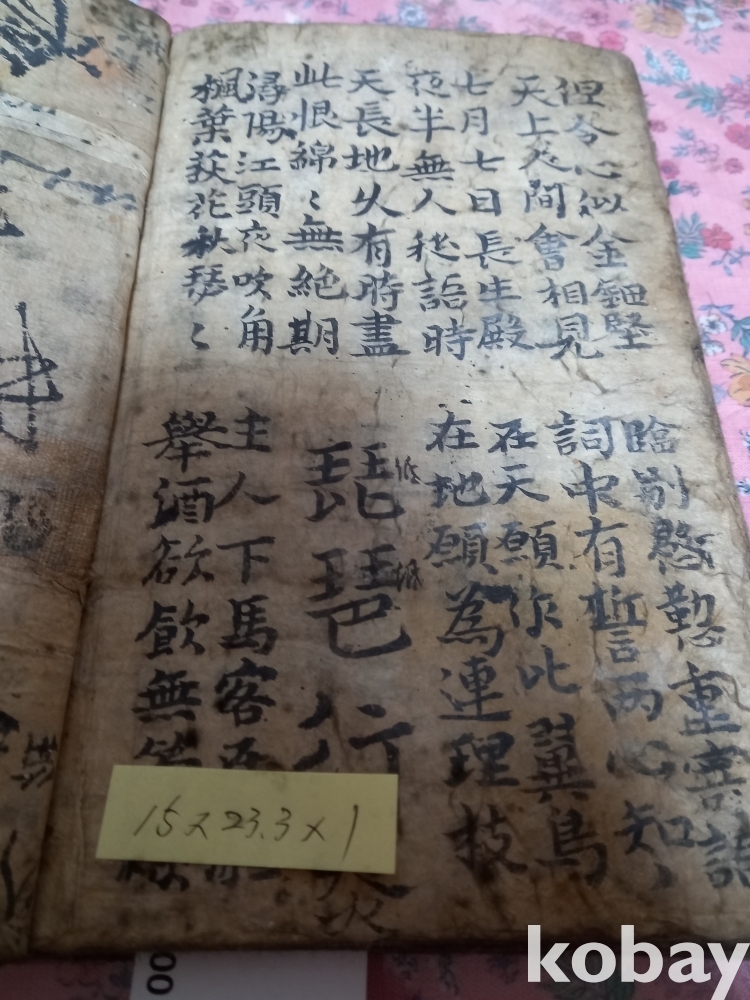 但令心似金鈿堅
天上人間會相見
臨別慇懃重寄語
詞中有誓兩心知
七月七日長生殿
夜半無人私語時
在天願作比翼鳥
在地願為連理技
天長地久有時盡
此恨綿〻無絕期
琵琶行
潯陽江頭夜吹角
楓葉荻花秋瑟〻
主人下馬客
舉酒欲飲無
15 x 23.3 x 1
00
kobay